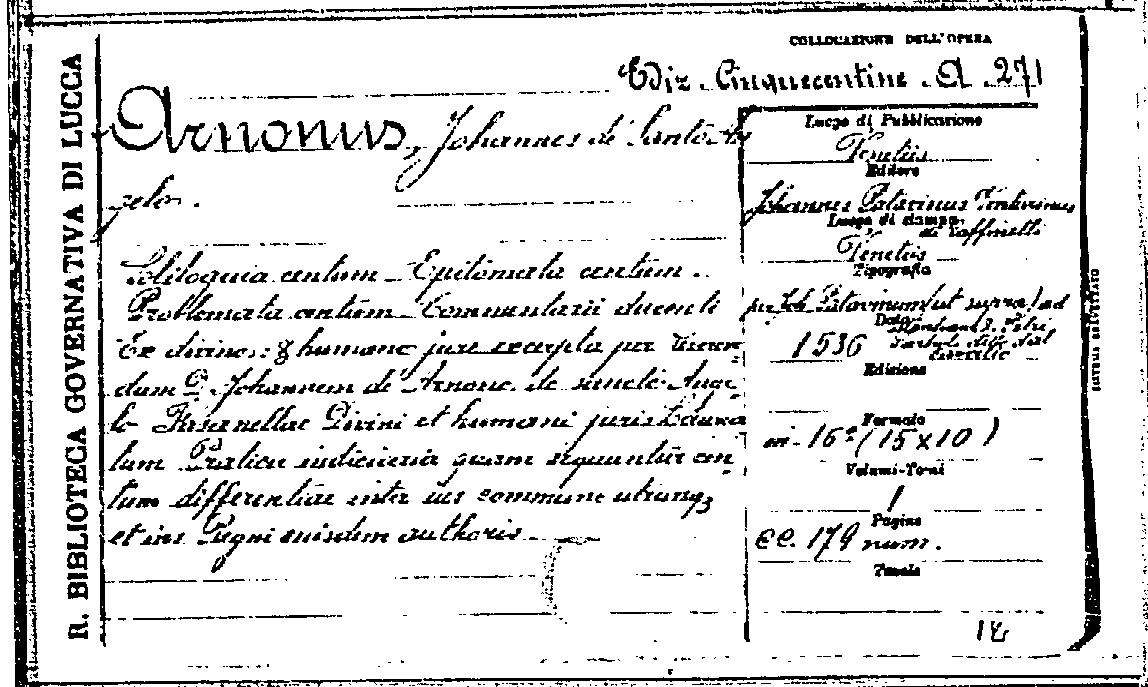 R. BIBLIOTECA GOVERNATIVA DI LUCCA
COLLOCAZIONE DELL'OPERA
Ediz. Cinquecentine A. 271
Arnonus, Johannes de Santo An
gelon.
Soliloquia centum Epitomata centum.
Problemata centum Commentarii ducenti
Ex divino: & humano jure excerpta per
dum D. Johannem de Arnono de sancto Ange
lo Fasanellae Divini et humani juris
tum Pratica iudiciaria quam sequuntur cen
tum differentiae inter ius commune utrunq3
et ius Regni eiusdem authoris
Luogo di Pubblicazione
Venetiis
Editore
Johannes Patavinus Venturinus
di Roffinelli
Luogo di stampa
Venetiis
Tipografia
per Joh. Patavinum (ut supra) ad
Data
1536
Edizione
Formato
in 16º (15 x 10)
Volumi-Tomi
1
Pagine
cc. 179 num.
Tavole